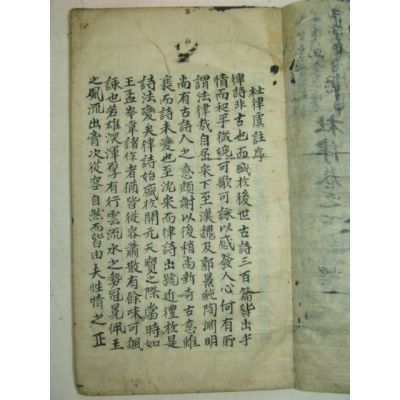 杜律虞註序
律詩非古也而盛於後世古詩三百篇皆出乎
情而和乎微婉可歌可詠以感發人心何有所
謂法律哉自屈來下至漢魏及郭景純陶淵明
尚有古詩人之意顏謝以後稍尚新奇古意雖
衰而詩未變也至沈來而律詩出號近禮於是
詩法變矣律詩始盛於開元天寶之際當時如
王孟岑韋諸作者猶皆從容蕭散有餘味可諷
詠也若雄深渾厚有行雲流水之勢冠冕佩玉
之風流出胷次從容自然而皆由夫性情之正
杜律卷之